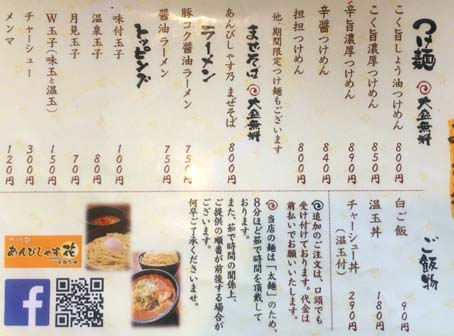 つけ麺 大盛無料
こく旨しょう油つけめん 800円
こく旨濃厚つけめん 850円
辛旨濃厚つけめん 890円
辛醤つけめん 840円
担担つけめん 800円
他、期間限定つけ麺もございます
まぜそば 大盛無料
あんびしゃす乃 まぜそば 800円
ラーメン
豚コク醤油ラーメン 750円
醤油ラーメン 750円
トッピング
味付玉子 100円
温泉玉子 80円
月見玉子 70円
W玉子(味玉と温玉) 150円
チャーシュー 300円
メンマ 120円
ご飯物
白ご飯 90円
温玉丼 180円
チャーシュー丼 290円
(温玉付)
追加のご注文は、口頭でも
受け付けております。代金は
前払いでお願いいたします。
当店の麺は「太麺」のため、
8分ほど茹で時間を頂戴して
おります。
また、茹で時間の関係上、
ご提供の順番が前後する場合が
ございます。
何卒ご了承くださいませ。
あんびしゃす花
f